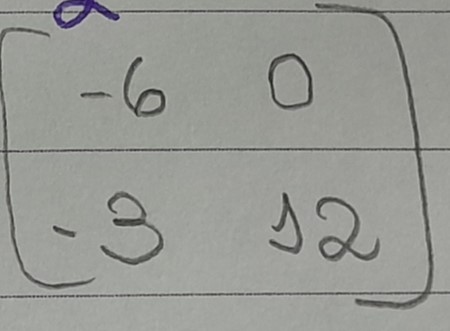 -6 0
-3 12